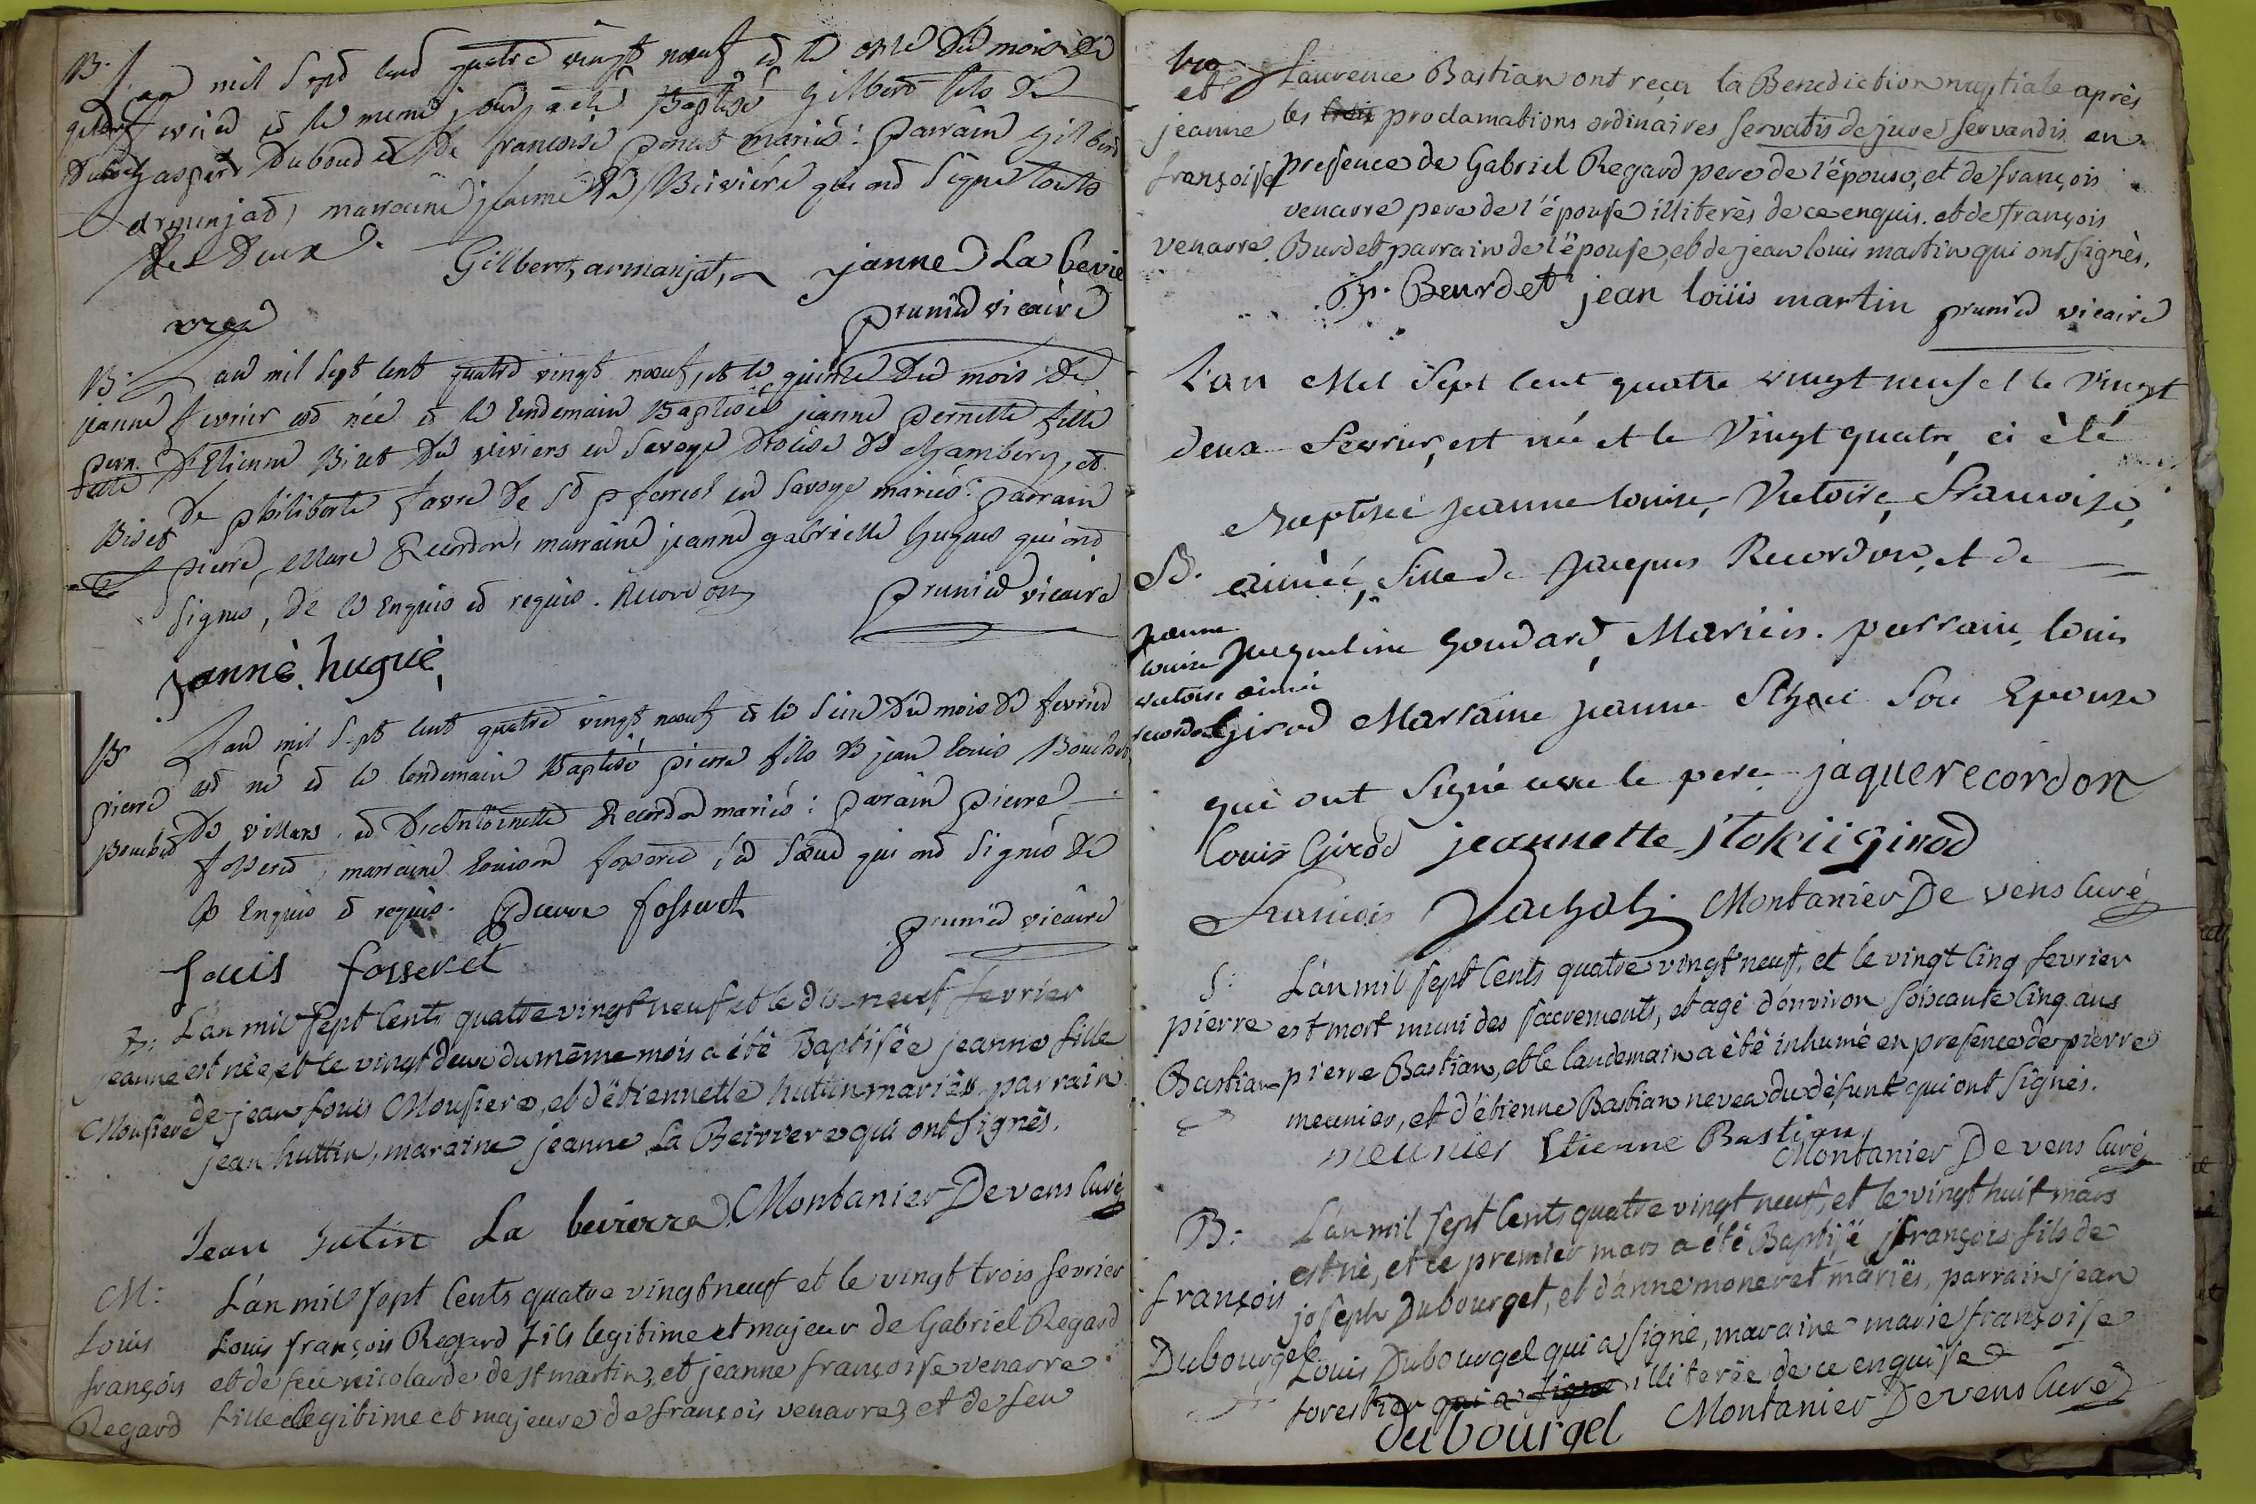 B. Lan mil Sept cent quatre vingt neuf et le onze du mois de
gilbert fevrier et le meme jour a eté Baptisé Gilbert fils de
Duboud gaspard Duboud et de francoise ponet mariés: parrain Gilbert
armanjat, marraine jeanne La Beviére qui ont signé tous
les deux. Gilbert armanjat, janne La bevie
vre
prunied vicaire
B. Lan mil Sept cent quatre vingt neuf, et le quinze du mois de
jeanne fevrier est née et le lendemain Baptisée jeanne pernette fille
pern. d'Etienne Biset de viviers en Savoye de chambery, et
ette
Biset de philiberte favre de St en Savoye mariés: parrain
pierre Marc Recordon, marraine jeanne gabrielle hugues qui ont
signés, de ce Enquis et requis. Recordon prunied vicaire
jannè. huguè
B. Lan mil Sept cent quatre vingt neuf et le Seize du mois de fevrier
pierre est né et le lendemain Baptisé pierre fils de jean louis Bouchet
Bouchet de villars, et d'Antoinette Recordon mariés: parain pierre
fosseret, marraine louison fosseret, sa soeur qui ont signés de
ce Enquis et requis. pierre fosseret prunied vicaire
Louis fosseret
B: L'an mil sept Cents quatre vingt neuf et le dix neuf fevrier
jeanne est née, et le vingt deux du même mois a été Baptisée jeanne fille
Mousiere de jean Louis Mousiere, et d'étiennette huttin mariés, parrain
jean huttin, maraine jeanne La Beiviere qui ont signés.
Jean hutin La beivierre Montanier De vens Curé
M: L'an mil sept Cents quatre vingt neuf et le vingt trois fevrier
Louis Louis françois Regard fils legitime et majeur de Gabriel Regard
françois et de feüe nicolarde de st martin, et jeanne françoise venarre
Regard fille legitime et majeure de françois venarre, et de feu
et Laurence Bastian ont reçu la Benediction nuptiale après
jeanne les trois proclamations ordinaires servatis de jure servandis en
françoise presence de Gabriel Regard pere de l'époux, et de françois
venarre pere de l'épouse illiterés de ce enquis. et de françois
venarre. Burdet parrain de l'épouse, et de jean louis martin qui ont signés.
fr. Beurdet jean loüis martin prunied vicaire
L'an Mil Sept Cent quatre vingt neuf et le Vingt
deux Fevrier, est née et le Vingt quatre, ci èté
Baptisée jeanne louise, Victoire, Francoise,
B. aimée, fille de Jacques Recordon, et de
jeanne Jacqueline Goudard, Mariés. parrain, louis
louise
victoire aimée
recordon Girod Marraine jeanne Son Epouse
qui ont Signé avec le pere jaque recordon
Louis Girod jeannette Stokii girod
Francois Montanier De vens Curé
S: L'an mil sept Cents quatre vingt neuf, et le vingt Cinq fevrier
pierre est mort muni des sacrements, et agé d'environ soixante Cinq ans
Bastian pierre Bastian, et le landemain a été inhumé en presence de pierre
meunier, et d'étienne Bastian neveu du défunt qui ont signés.
meunier Etienne Bastian
Montanier De vens Curé
B: L'an mil sept Cents quatre vingt neuf, et le vingt huit mars
est né, et ce premier mars a été Baptisé françois fils de
françois joseph Dubourgel, et d'anne moneret mariés, parrain jean
Dubourgel Louis Dubourgel qui a signé, maraine marie françoise
forestier qui a signé illiterée de ce enquise
dubourgel Montanier De vens Curé